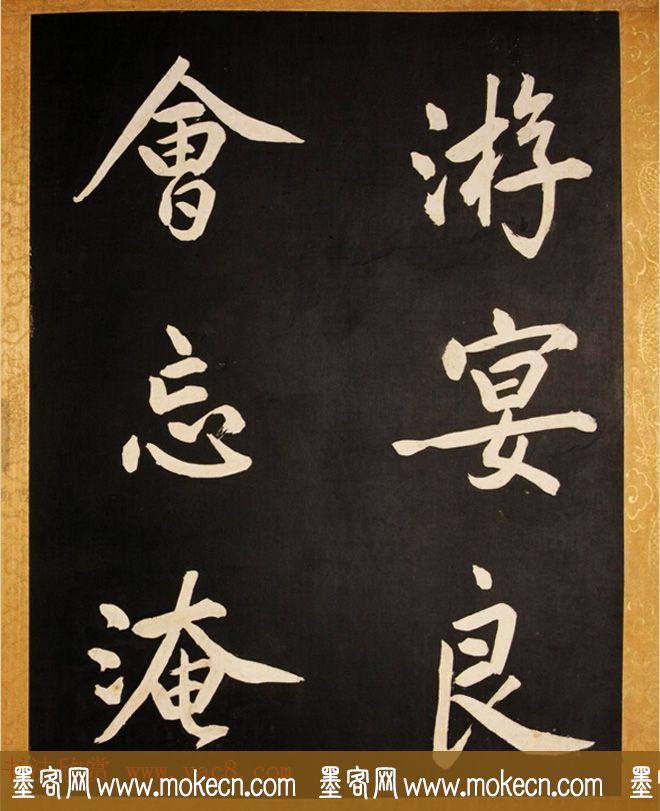 游宴良
會忘淹
www.yac8.com
墨客网 www.mokecn.com 墨客网 www.mokecn.com 墨